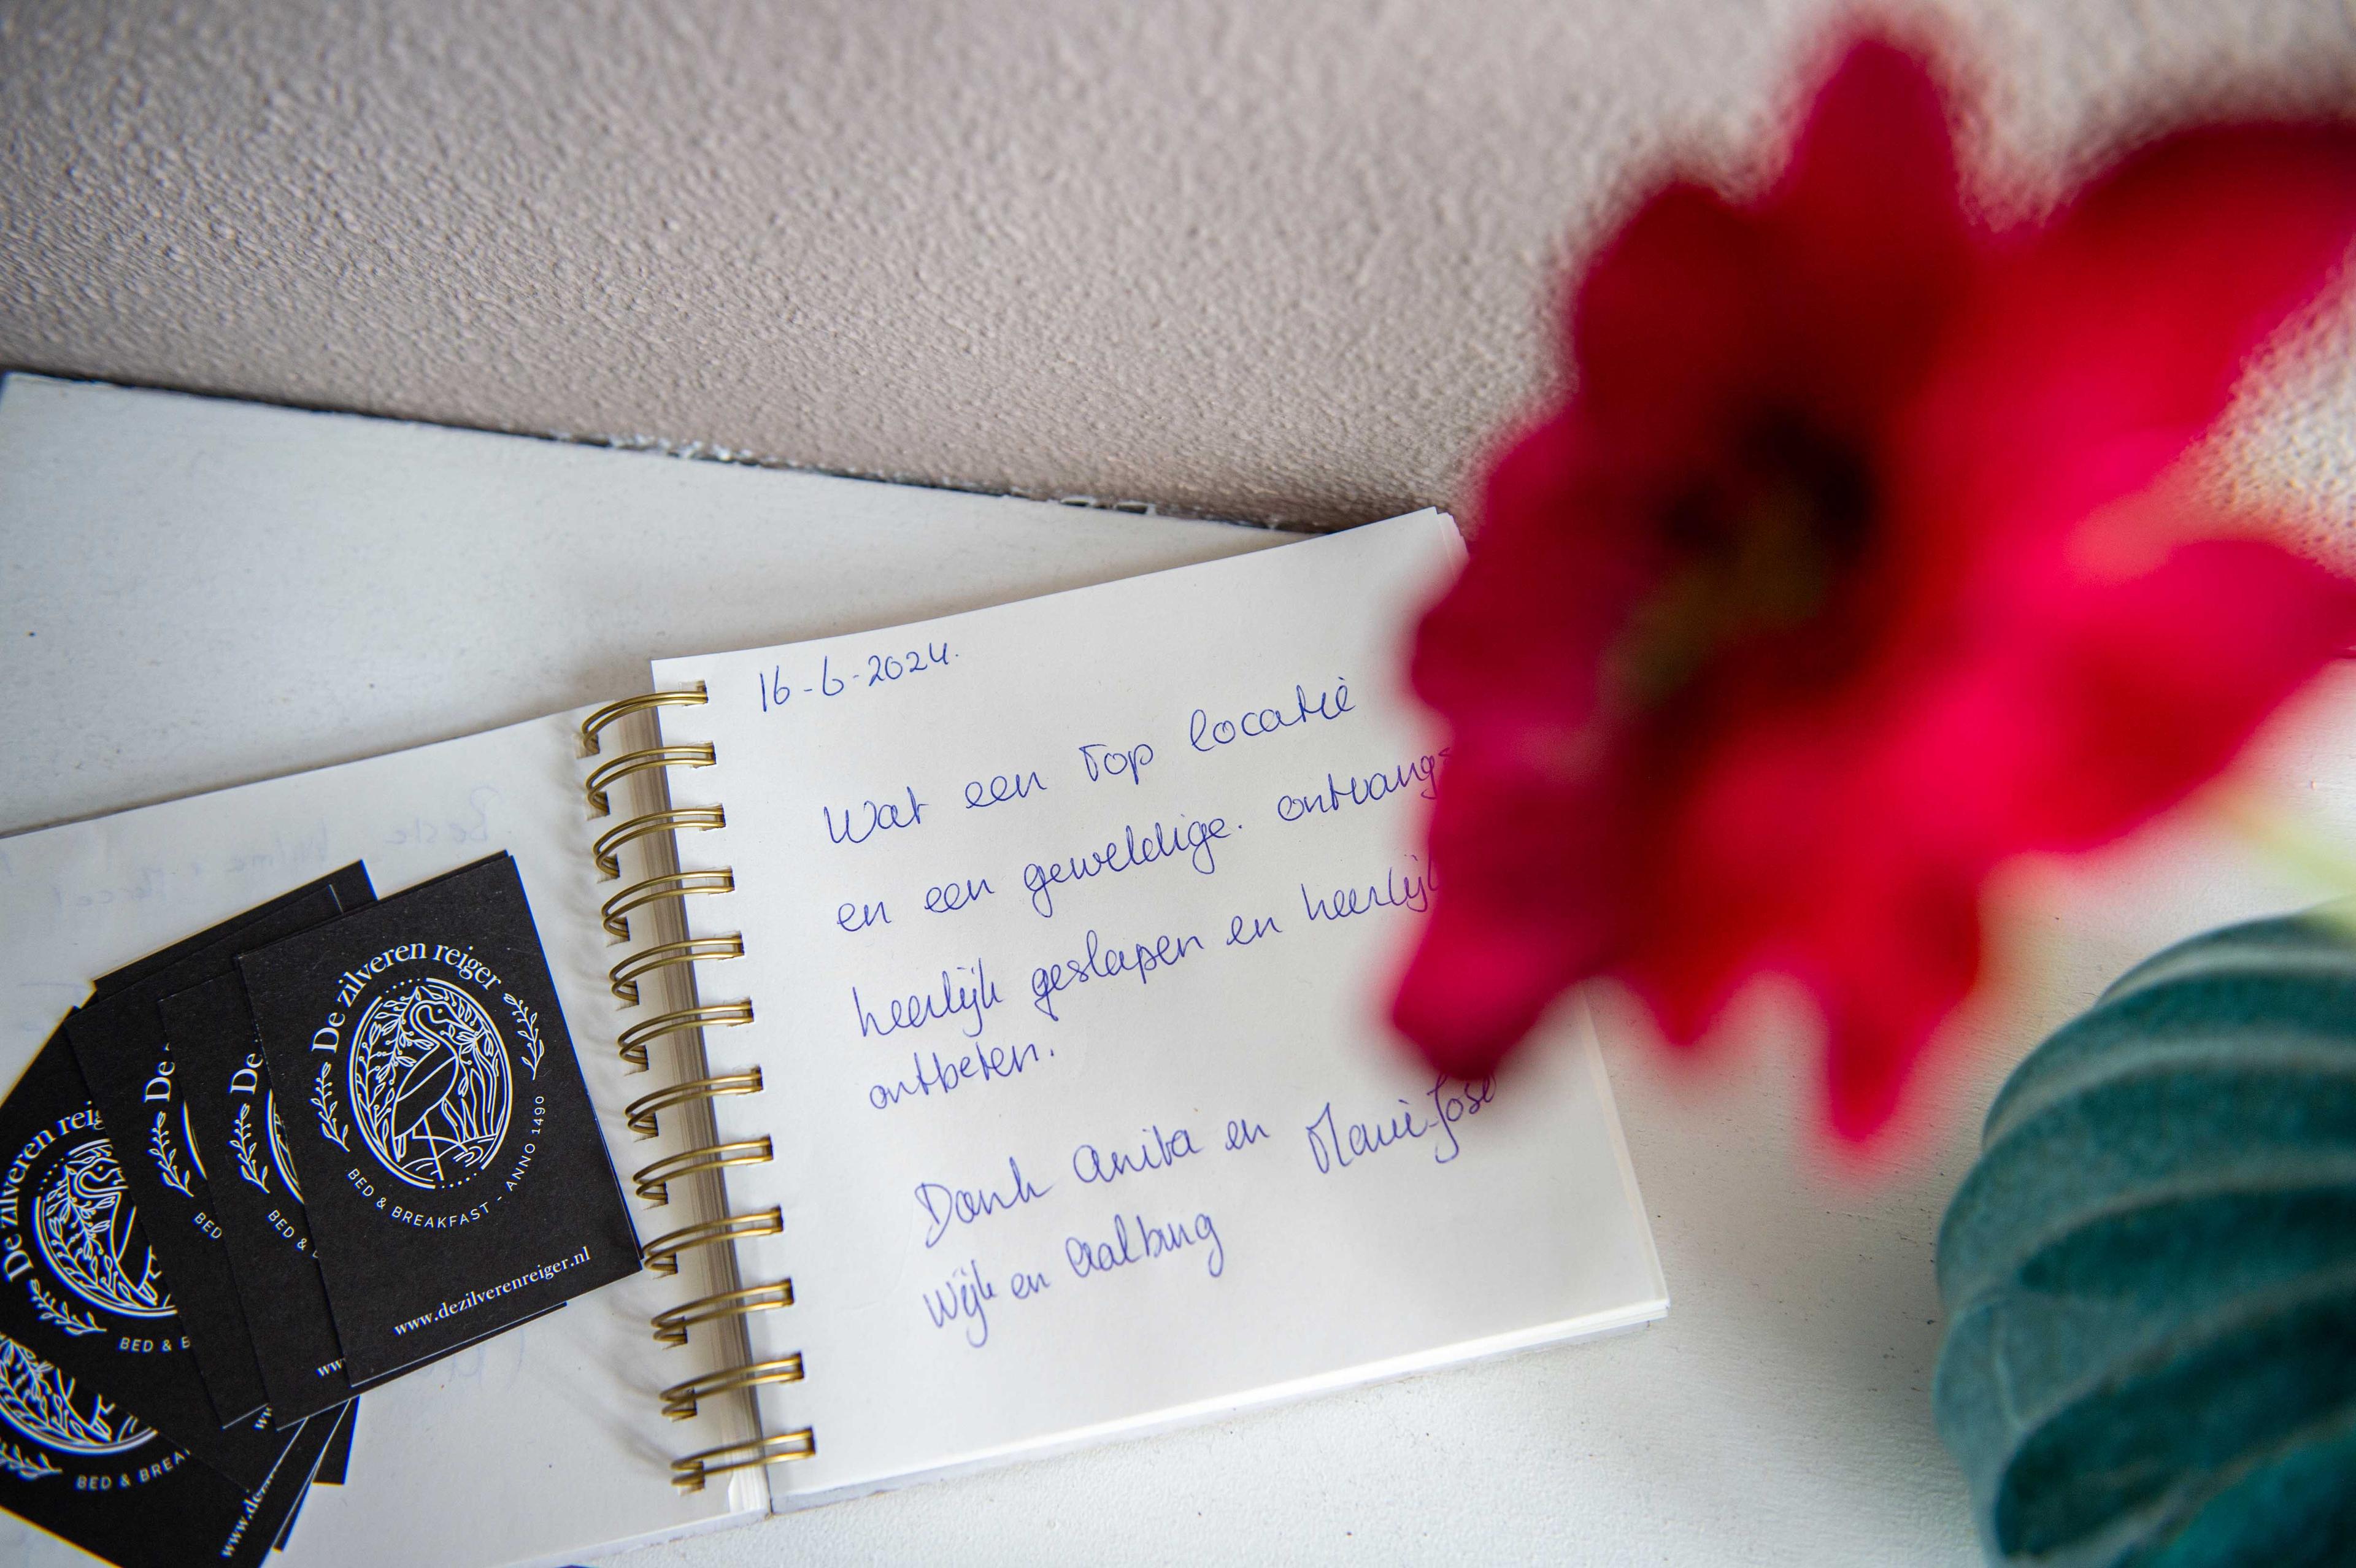 16-6-2024.
Wat een Top locatie
en een geweldige. ontvangs
heerlijk geslapen en heerlijk
ontbeten.
Dank Anita en Marie-José
Wijk en Aalburg
De zilveren reiger
BED & BREAKFAST - ANNO 1490
www.dezilverenreiger.nl
De
BED &
ww
De
BED
ww
De zilveren reig
BED & B
www.de
BED & BREA